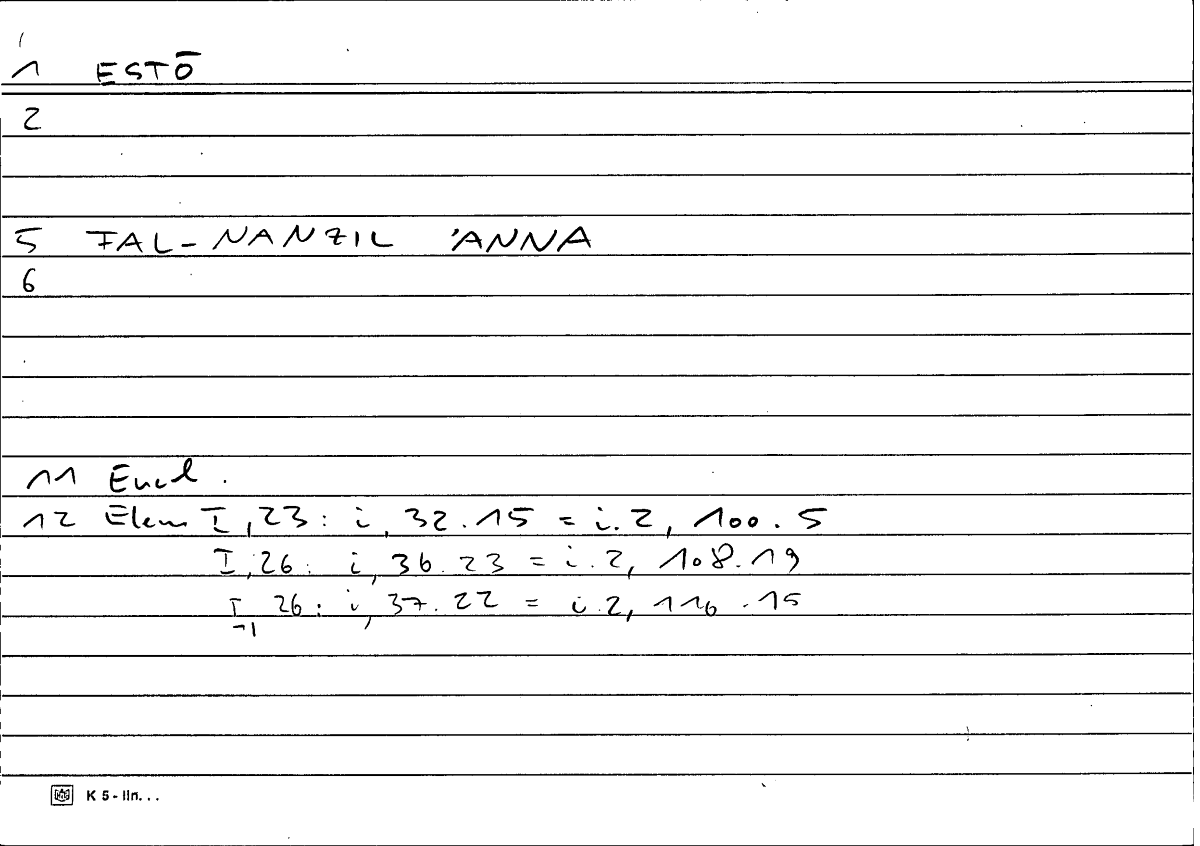 1 ESTŌ
2
5 FAL-NANZIL 'ANNA
6
11 Eucl.
12 Elem I, 23: i, 32.15 = i.2, 100.5
I, 26: i, 36.23 = i.2, 108.19
I, 26: i, 37.22 = i.2, 116.15
K 5-lin...